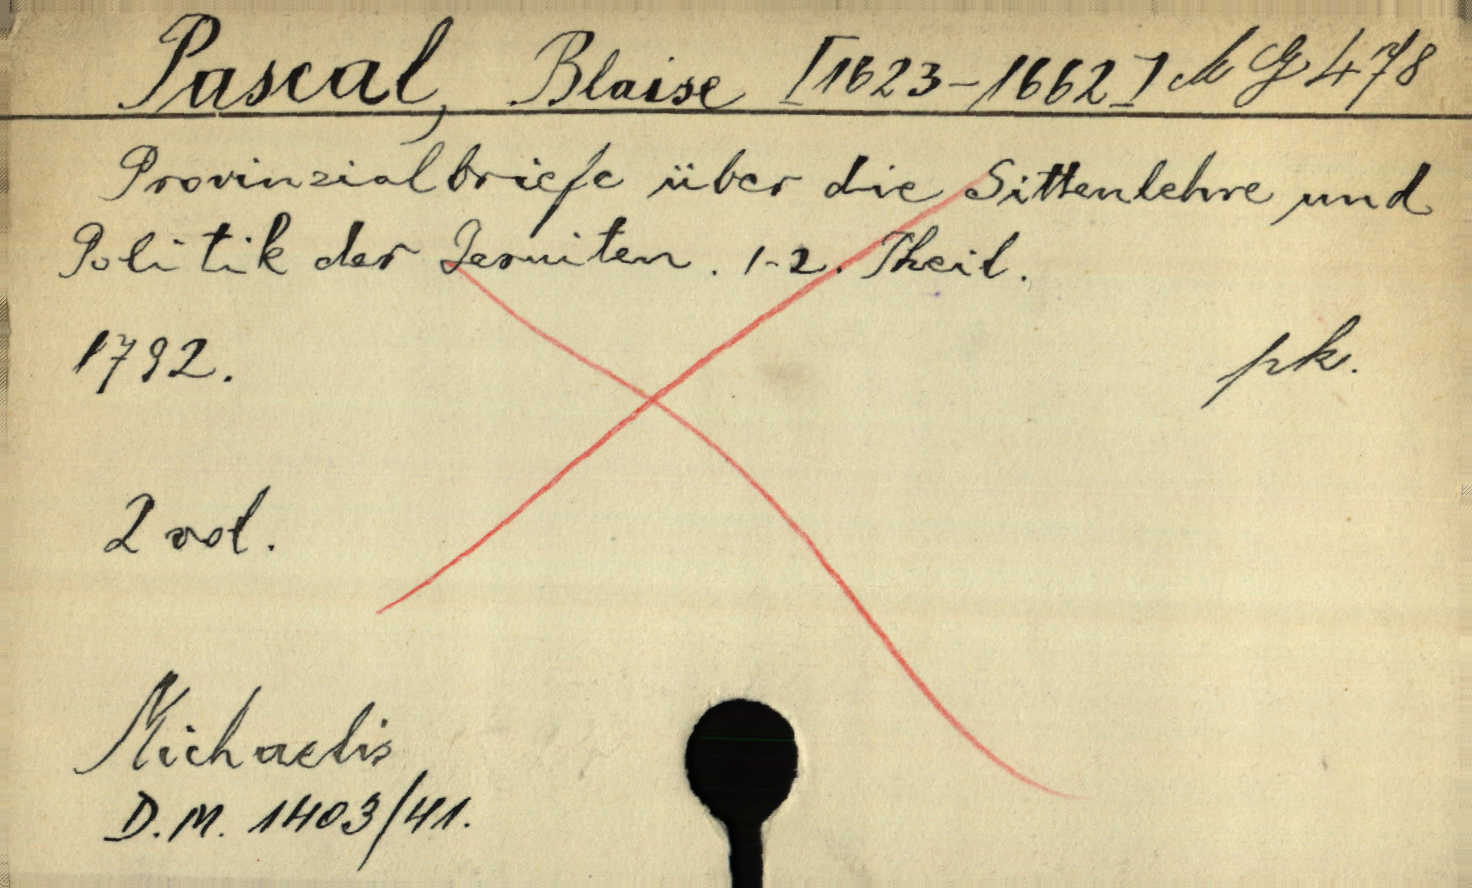 Pascal, Blaise [1623-1662] M G 478
Provinzialbriefe über die Sittenlehre und
Politik der Jesuiten. 1-2. Theil.
1792. pk.
2 vol.
Michaelis
D.M. 1403/41.